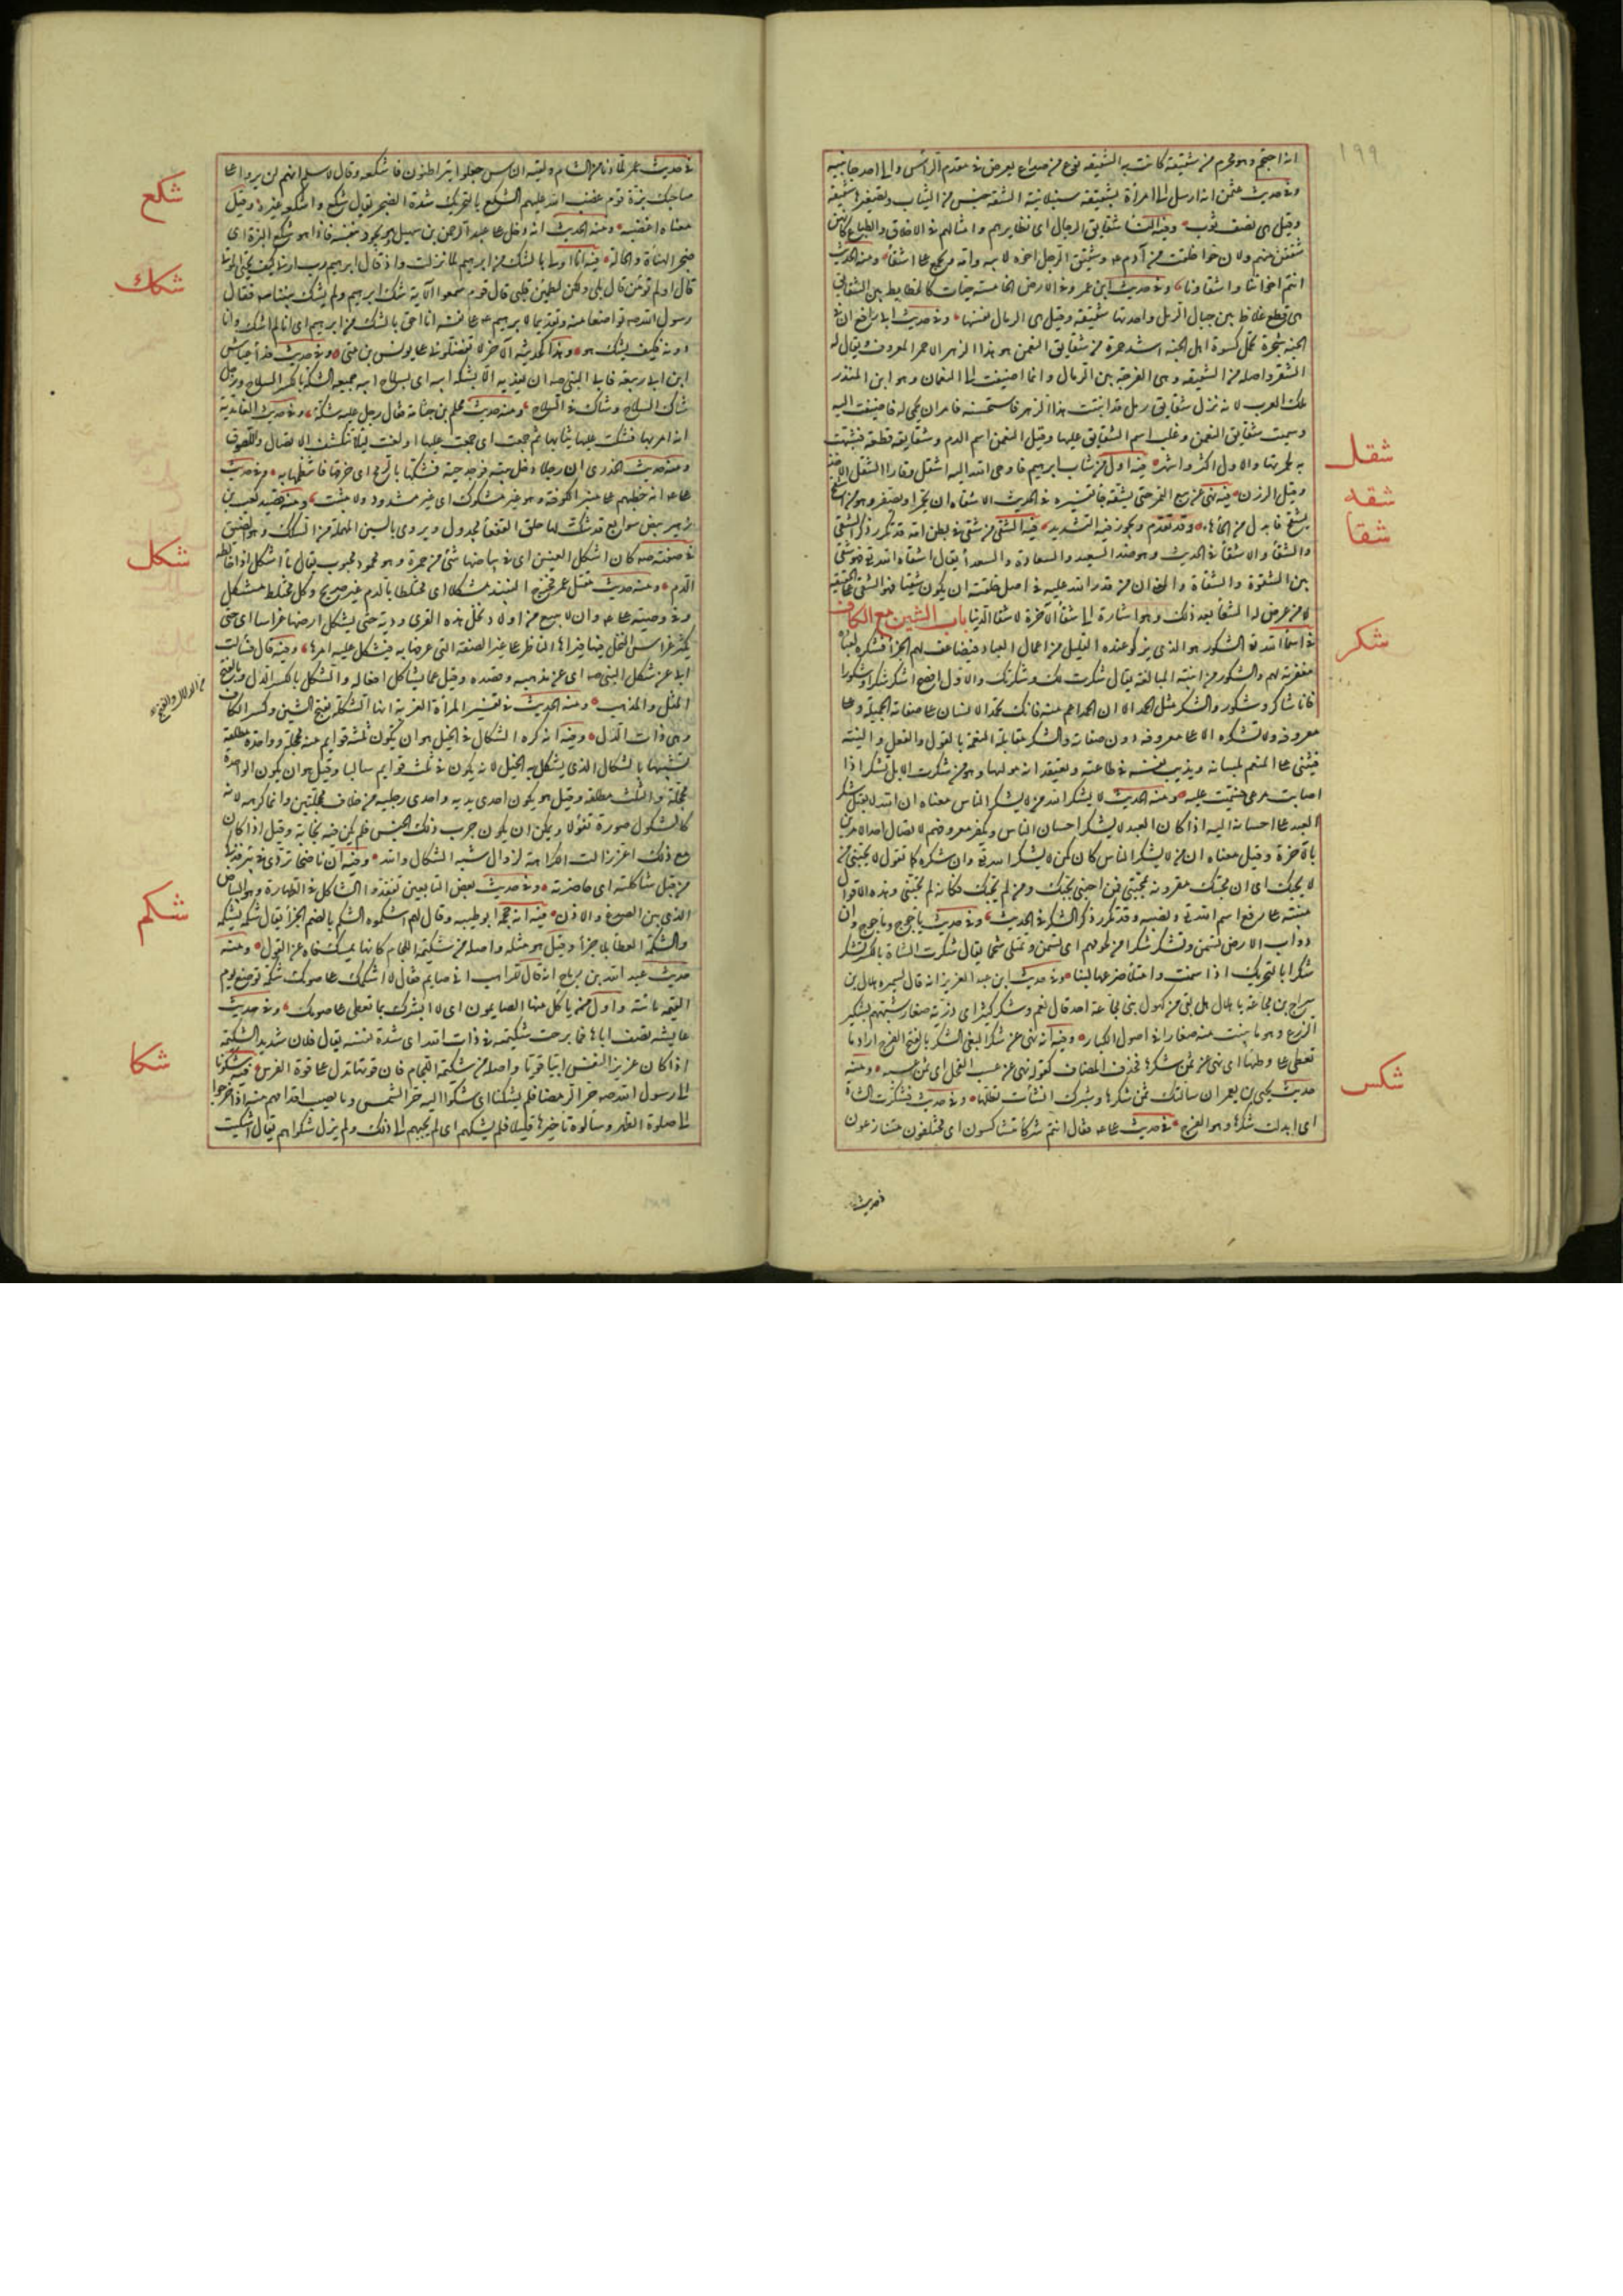 ١٩٩
انه احتجم وهو محرم من شقيقة كانت به الشقيقه نوع من صداع يعرض في مقدم الرأس والى احد جانبيه
وفي حديث عثمن انه ارسل الى امرأة بشقيقة سنبلانية الشقة جنس من الثياب وتصغيرها شقيقة
وقيل هي نصف ثوب وفيه النسا شقايق الرجال اي نظايرهم وامثالهم في الاخلاق والطباع كانهن
شققن منهم ولان حوا خلقت من آدم عم وشقيق الرجل اخوه لابيه وامه ويجمع على اشقا ومنه الحديث
انتم اخواننا واشقاونا وفي حديث ابن عمر وفي الارض الخامسة حيات كالخطايط بين الشقايق
هي قطع غلاظ بين حبال الرمل واحدتها شقيقة وقيل هي الرمال نفسها وفي حديث ابي رافع ان في
الجنه شجرة تحمل كسوة اهل الجنه اشد حمرة من شقايق النعمن هو هذا الزهر الاحمر المعروف ويقال له
الشقر واصله من الشقيقه وهي الفرجة بين الرمال وانما اضيفت الى النعمان وهو ابن المنذر
ملك العرب لانه نزل شقايق رمل قد انبتت هذا الزهر فاستحسنه فامر ان يحمى له فاضيفت اليه
وسميت شقايق النعمن وغلب اسم الشقايق عليها وقيل النعمن اسم الدم وشقايقه قطعه فشبهت
به لحمرتها والاول اكثر واشهر فيه اول من شاب ابرهيم فاوحى الله اليه اشقل وقارا الشقل الاخذ
شقل
وقيل الوزن فيه نهى عن بيع التمر حتى يشقه جا تفسيره في الحديث الاشقاه ان يحمر او يصفر وهو من اشقح
شقه
يشقح فابدل من الحا ها وقد تقدم ويجوز فيه التشديد فيه الشقي من شقي في بطن امه قد تكرر ذكر الشقي
شقا
والشقا والاشقيا في الحديث وهو ضد السعيد والسعادة والسعدا يقال اشقاه الله فهو شقي
بين الشقوة والشقاة والمعنى ان من قدر الله عليه في اصل خلقته ان يكون شقيا فهو الشقي على الحقيقه
لا من عرض له الشقا بعد ذلك وهو اشارة الى شقا الآخرة لا شقا الدنيا باب الشين مع الكاف
في اسماء الله تع الشكور هو الذي يزكو عنده القليل من اعمال العباد فيضاعف لهم الجزا فشكره لعباده
شكر
مغفرته لهم والشكور من ابنية المبالغة يقال شكرت لك وشكرتك والاول افصح اشكر شكرا وشكورا
فانا شاكر وشكور والشكر مثل الحمد الا ان الحمد اعم منه فانك تحمد الانسان على صفاته الجميلة وعلى
معروفه ولا تشكره الا على معروفه دون صفاته والشكر مقابلة النعمة بالقول والفعل والنية
فيثني على المنعم بلسانه ويذيب نفسه في طاعته ويعتقد انه موليها وهو من شكرت الابل تشكر اذا
اصابت مرعى فسمنت عليه ومنه الحديث لا يشكر الله من لا يشكر الناس معناه ان الله لا يقبل شكر
العبد على احسانه اليه اذا كان العبد لا يشكر احسان الناس ويكفر معروفهم لاتصال احد الامرين
بالآخرة وقيل معناه ان من لا يشكر الناس كان كمن لا يشكر الله تع وان شكره كما تقول لا يحبني من
لا يحبك اي ان محبتك مقرونة بمحبتي فمن احبني يحبك ومن لم يحبك فكانه لم يحبني وهذه الاقوال
مبنية على رفع اسم الله تع ونصبه وقد تكرر ذكر الشكر في الحديث وفي حديث ياجوج وماجوج وان
دواب الارض تسمن وتشكر شكرا من لحومهم اي تسمن وتمتلي شحما يقال شكرت الشاة بالكسر تشكر
شكرا بالتحريك اذا سمنت وامتلا ضرعها لبنا وفي حديث ابن عبد العزيز انه قال لسميره هلال بن
سراج بن مجاعة يا هلال هل بقي من كهول بني مجاعة احد قال نعم وشكير كثير اي ذرية صغار شبههم بشكير
الزرع وهو ما ينبت منه صغارا في اصول الكبار وفيه انه نهى عن شكر البغي الشكر بالفتح الفرج اراد ما
تعطى على وطئها اي نهى عن ثمن شكرها فحذف المضاف كقوله نهى عن عسب الفحل اي ثمن عسبه ومنه
حديث يحيى بن يعمر ان سالتك ثمن شكرها وشبرك انشأت تطلها وفي حديث فشكرت الشاة
شكس
اي ابدلت شكرها وهو الفرج في حديث علي عم فقال انتم شركا متشاكسون اي مختلفون متنازعون
في حديث
في حديث عمر لما دنا من الشام ولقيه الناس جعلوا يتراطنون فاشكعه وقال لاسلم انهم لن يروا على
شكع
صاحبك بزة قوم غضب الله عليهم الشكع بالتحريك شدة الضجر يقال شكع واشكعه غيره وقيل
معناه اغضبه ومنه الحديث انه دخل على عبد الرحمن بن سهيل وهو يجود بنفسه فاذا هو شكع البزة اي
ضجر الهيأة والحالة فيه انا اولى بالشك من ابرهيم لما نزلت واذ قال ابرهيم رب ارني كيف تحيي الموتى
شكك
قال اولم تؤمن قال بلى ولكن ليطمئن قلبي قال قوم سمعوا الآية شك ابرهيم ولم يشك نبينا صه فقال
رسول الله صه تواضعا منه وتقديما لابرهيم عم على نفسه انا احق بالشك من ابرهيم اي انا لم اشك وانا
دونه فكيف يشك هو وهذا كحديثه الآخر لا تفضلوني على يونس بن متى وفي حديث فدا عياش
ابن ابي ربيعة فابى النبي صه ان يفديه الا بشكة ابيه اي بسلاح ابيه جميعه الشكة بالكسر السلاح ورجل
شاك السلاح وشاك في السلاح ومنه حديث محلم بن جثامة فقام رجل عليه شكة وفي حديث الغامدية
انه امر بها فشكت عليها ثيابها ثم رجمت اي جمعت عليها ولفت ليلا تنكشف
ومنه حديث الخدري ان رجلا دخل بيته فوجد حية فشكها بالرمح اي خرقها وانتظمها به وفي حديث
علي عم انه خطبهم على منبر الكوفة وهو غير مشكوك اي غير مشدود ولا مثبت ومنه قصيد كعب بن
زهير بيض سوابغ قد شكت لها حلق القفعاء مجدول ويروى بالسين المهملة من السكك وهو الضيق
في صفته صه كان اشكل العينين اي في بياضهما شي من حمرة وهو محمود محبوب يقال ما اشكل اذا خالطه
شكل
الدم ومنه حديث مقتل عمر فخرج النبيذ مشكلا اي مختلطا بالدم غير صريح وكل مختلط مشكل
وفي وصية علي عم وان لا يبيع من اولاد نخل هذه القرى ودية حتى يشكل ارضها غراسا اي حتى
يكثر غراس النخل فيها فيراها الناظر على غير الصفة التي عرفها به فيشكل عليه امرها وفيه قال فسالت
ابي عن شكل النبي صه اي عن مذهبه وقصده وقيل عما يشاكل افعاله والشكل بالكسر الدل وبالفتح
المثل والمذهب ومنه الحديث في تفسير المرأة العربة انها الشكلة بفتح الشين وكسر الكاف
وهي ذات الدل وفيه انه كره الشكال في الخيل هو ان تكون ثلثه قوايم منه محجلة وواحدة مطلقة
تشبيها بالشكال الذي يشكل به الخيل لانه يكون في ثلث قوايم غالبا وقيل هو ان يكون الواحدة
محجلة والثلث مطلقة وقيل هو يكون احدى يديه واحدى رجليه من خلاف محجلتين وانما كرهه لانه
كالمشكول صورة تفولا ويمكن ان يكون جرب ذلك الجنس فلم يكن فيه نجابة وقيل اذا كان
مع ذلك اغر زالت الكراهة لزوال شبه الشكال والله وفيه ان ناضحا تردى في بير فذكي
من قبل شاكلته اي خاصرته وفي حديث بعض التابعين تفقدوا الشاكل في الطهارة وهو البياض
الذي بين الصدغ والاذن فيه انه حجمه ابو طيبه وقال لهم اشكموه الشكم بالضم الجزا يقال شكمه يشكمه
شكم
والشكم العطا بلا جزا وقيل هو مثله واصله من شكيمة اللجام كانها تمسك فاه عن القول ومنه
حديث عبد الله بن رباح انه قال للراهب اني صايم فقال الا اشكمك على صومك شكمة توضع يوم
القيمة مائدة واول من ياكل منها الصايمون اي الا ابشرك بما تعطى على صومك وفي حديث
عايشه تصف اباها فما برحت شكيمته في ذات الله اي شدة نفسه يقال فلان شديد الشكيمة
اذا كان عزيز النفس ابيا قويا واصله من شكيمة اللجام فان قوتها تدل على قوة الفرس فيه شكونا
شكا
الى رسول الله صه حر الرمضا فلم يشكنا اي شكوا اليه حر الشمس وما يصيب اقدامهم منه اذا خرجوا
الى صلوة الظهر وسالوه تاخيرها قليلا فلم يشكهم اي لم يجبهم الى ذلك ولم يزل شكواهم يقال اشكيت